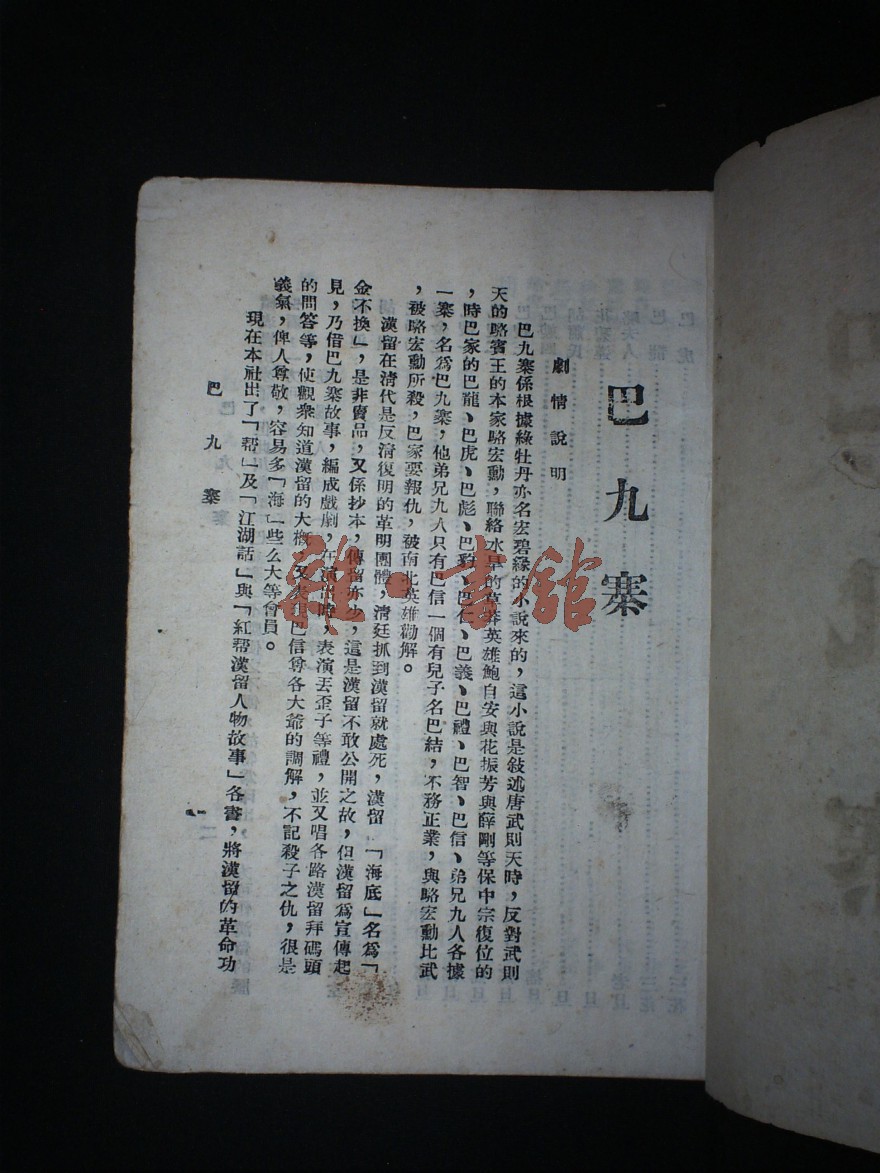 巴九寨
劇情說明
巴九寨係根據綠牡丹亦名宏碧緣的小說來的，這小說是敍述唐武則天時，反對武則
天的駱賓王的本家駱宏勳，聯絡水旱的草莽英雄鮑自安與花振芳與薛剛等保中宗復位的
，時巴家的巴龍、巴虎、巴彪、巴、巴仁、巴義、巴禮、巴智、巴信、弟兄九人各據
一寨，名爲巴九寨，他弟兄九人只有巴信一個有兒子名巴結，不務正業，與駱宏勳比武
，被駱宏勳所殺，巴家要報仇，被南北英雄勸解。
漢留在清代是反清復明的革明團體，清廷抓到漢留就處死，漢留「海底」名爲「
金不換」，是非賣品，又係抄本，傳留亦少，這是漢留不敢公開之故，但漢留爲宣傳起
見，乃借巴九寨故事，編成戲劇，在演的時，表演丟歪子等禮，並又唱各路漢留拜碼頭
的問答等，使觀衆知道漢留的大概，又表巴信尊各大爺的調解，不記殺子之仇，很是
義氣，俾人尊敬，容易多「海」一些么大等會員。
現在本社出了「帮」及「江湖話」與「紅帮漢留人物故事」各書，將漢留的革命功
巴九寨
一
雅·書館